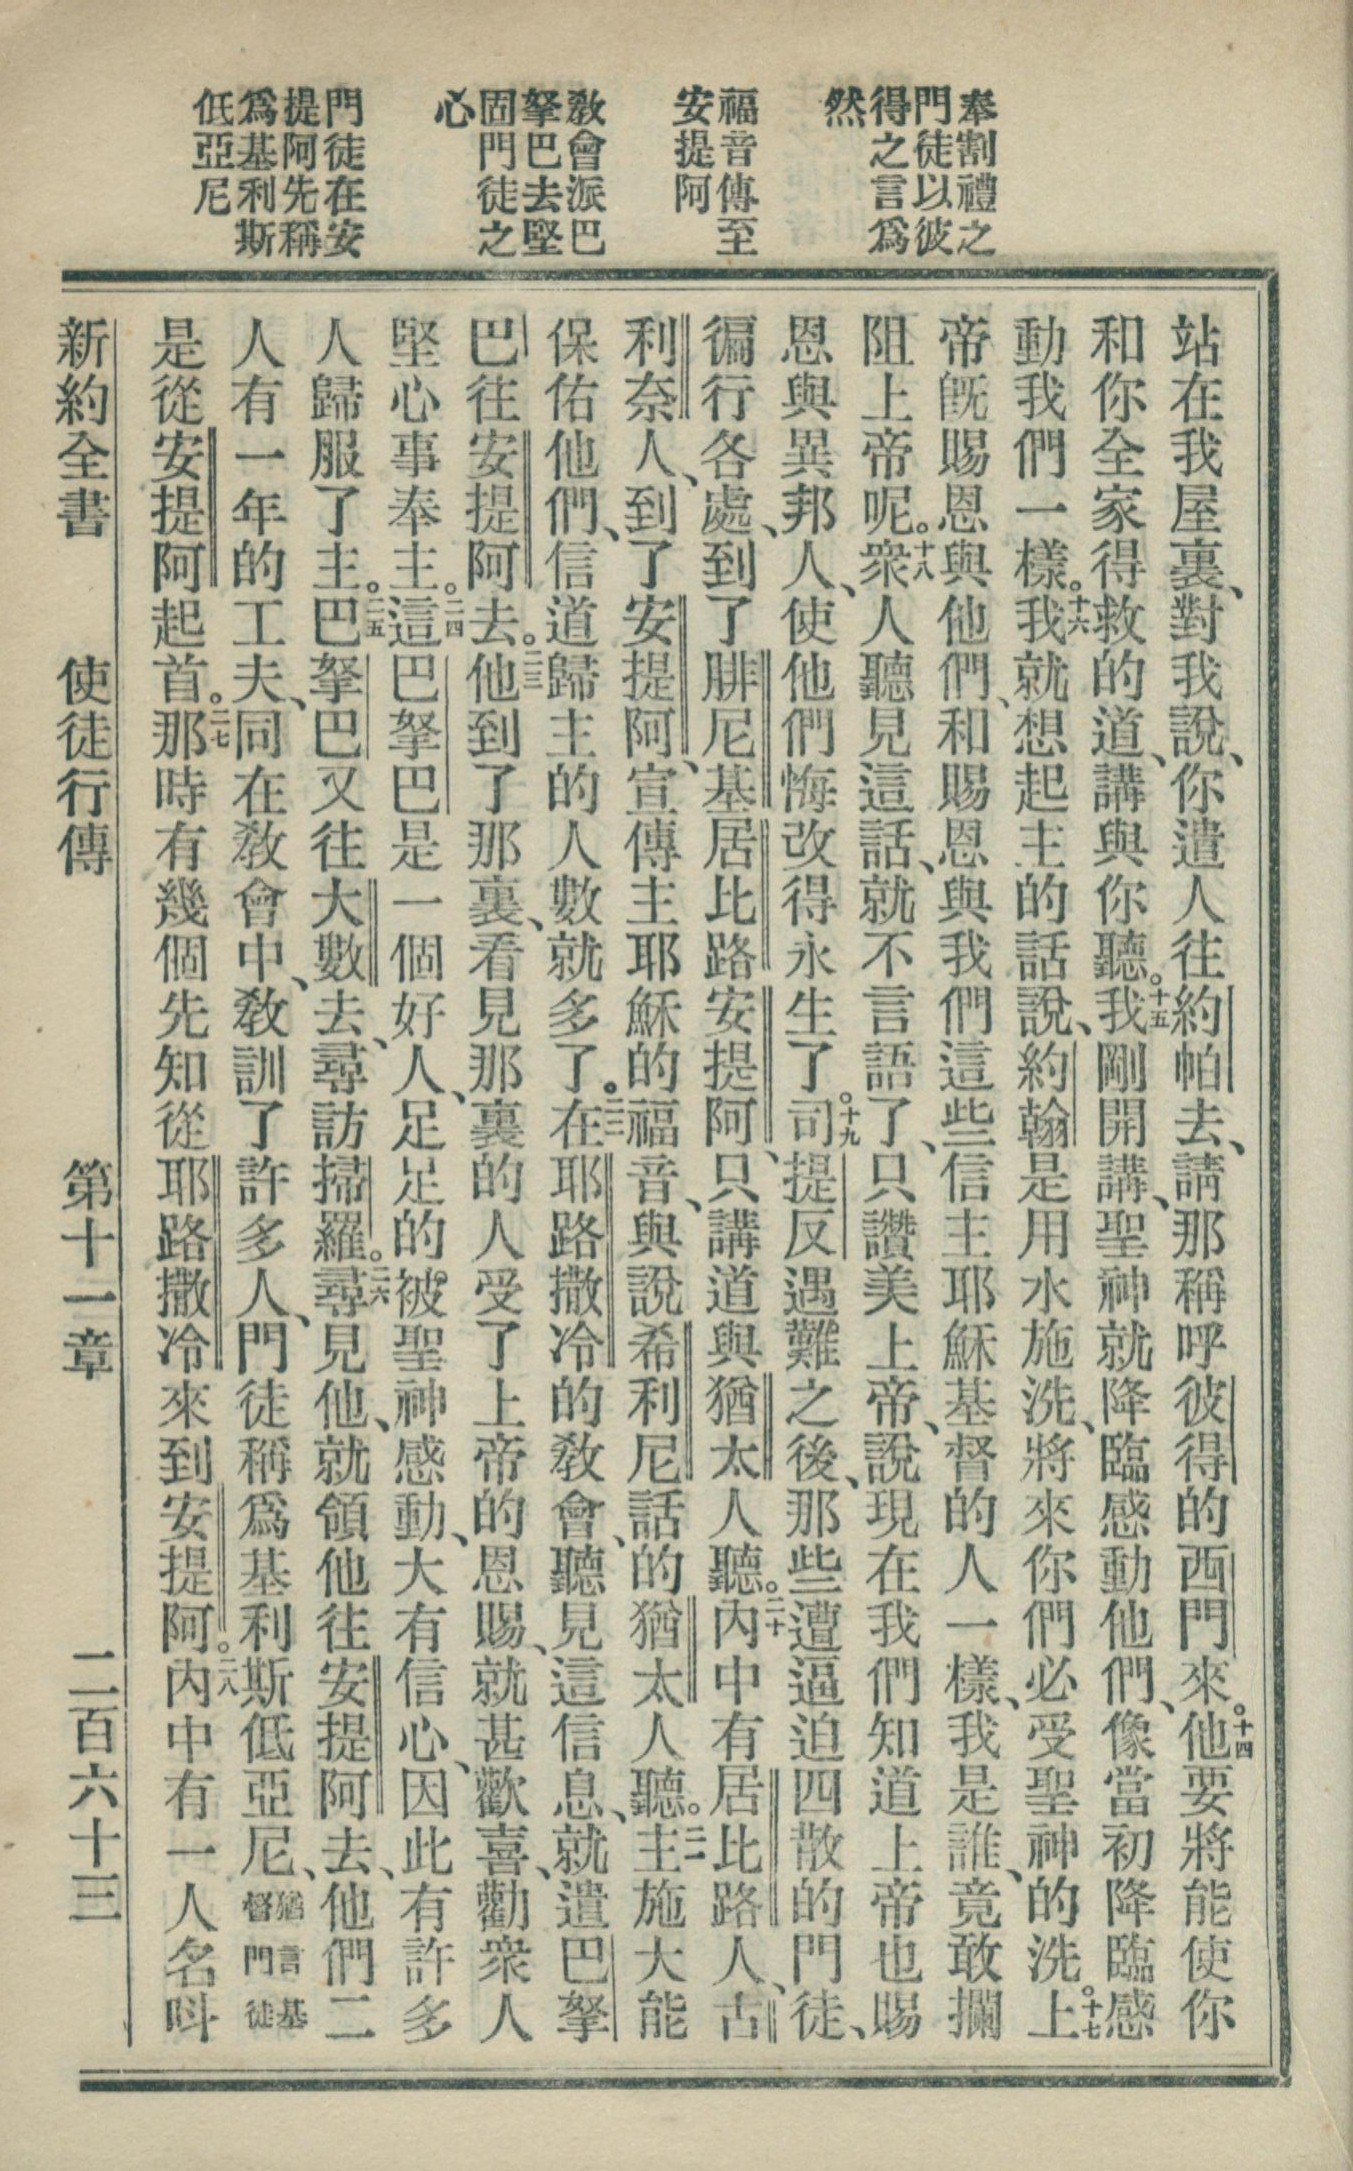 奉割禮之
門徒以彼
得之言爲
然
福音傳至
安提阿
敎會派巴
拏巴去堅
固門徒之
心
門徒在安
提阿先稱
爲基利斯
低亞尼
站在我屋裏、對我說、你遣人往約帕去、請那稱呼彼得的西門來。十四他要將能使你
和你全家得救的道、講與你聽。十五我剛開講、聖神就降臨感動他們、像當初降臨感
動我們一樣。十六我就想起主的話說、約翰是用水施洗、將來你們必受聖神的洗。十七上
帝旣賜恩與他們、和賜恩與我們這些信主耶穌基督的人一樣、我是誰、竟敢攔
阻上帝呢。十八衆人聽見這話、就不言語了、只讚美上帝、說現在我們知道上帝也賜
恩與異邦人、使他們悔改得永生了。十九司提反遇難之後、那些遭逼迫四散的門徒、
徧行各處、到了腓尼基居比路安提阿、只講道與猶太人聽。二十內中有居比路人、古
利奈人、到了安提阿、宣傳主耶穌的福音、與說希利尼話的猶太人聽。二一主施大能
保佑他們、信道歸主的人數就多了。二二在耶路撒冷的敎會、聽見這信息、就遣巴拏
巴往安提阿去。二三他到了那裏、看見那裏的人受了上帝的恩賜、就甚歡喜、勸衆人
堅心事奉主。二四這巴拏巴是一個好人、足足的被聖神感動、大有信心、因此有許多
人歸服了主。二五巴拏巴又往大數去、尋訪掃羅。二六尋見他、就領他往安提阿去、他們二
人有一年的工夫、同在敎會中、敎訓了許多人、門徒稱爲基利斯低亞尼、猶言基督門徒
是從安提阿起首。二七那時有幾個先知從耶路撒冷來到安提阿。二八內中有一人名呌
新約全書 使徒行傳 第十一章 二百六十三